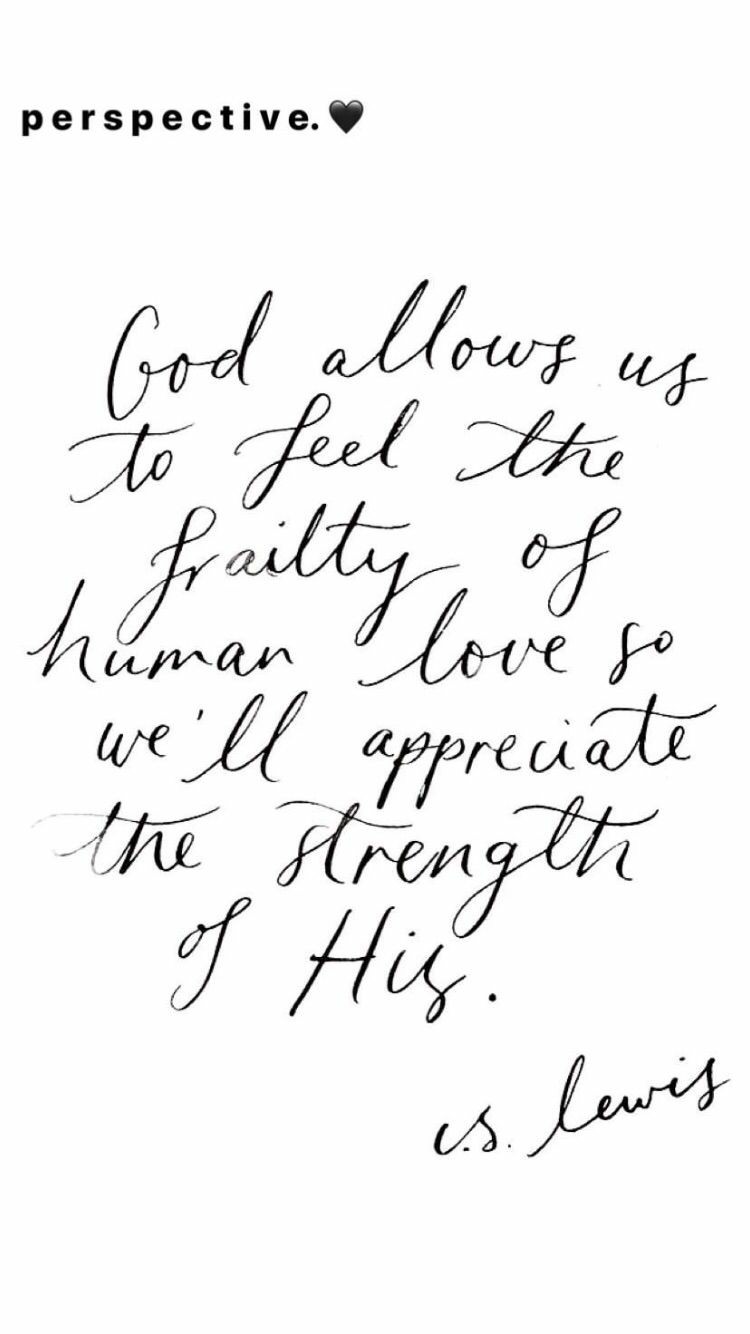 perspective.🖤
God allows us
to feel the
frailty of
human love so
we'll appreciate
the strength
of His.
c.s. lewis